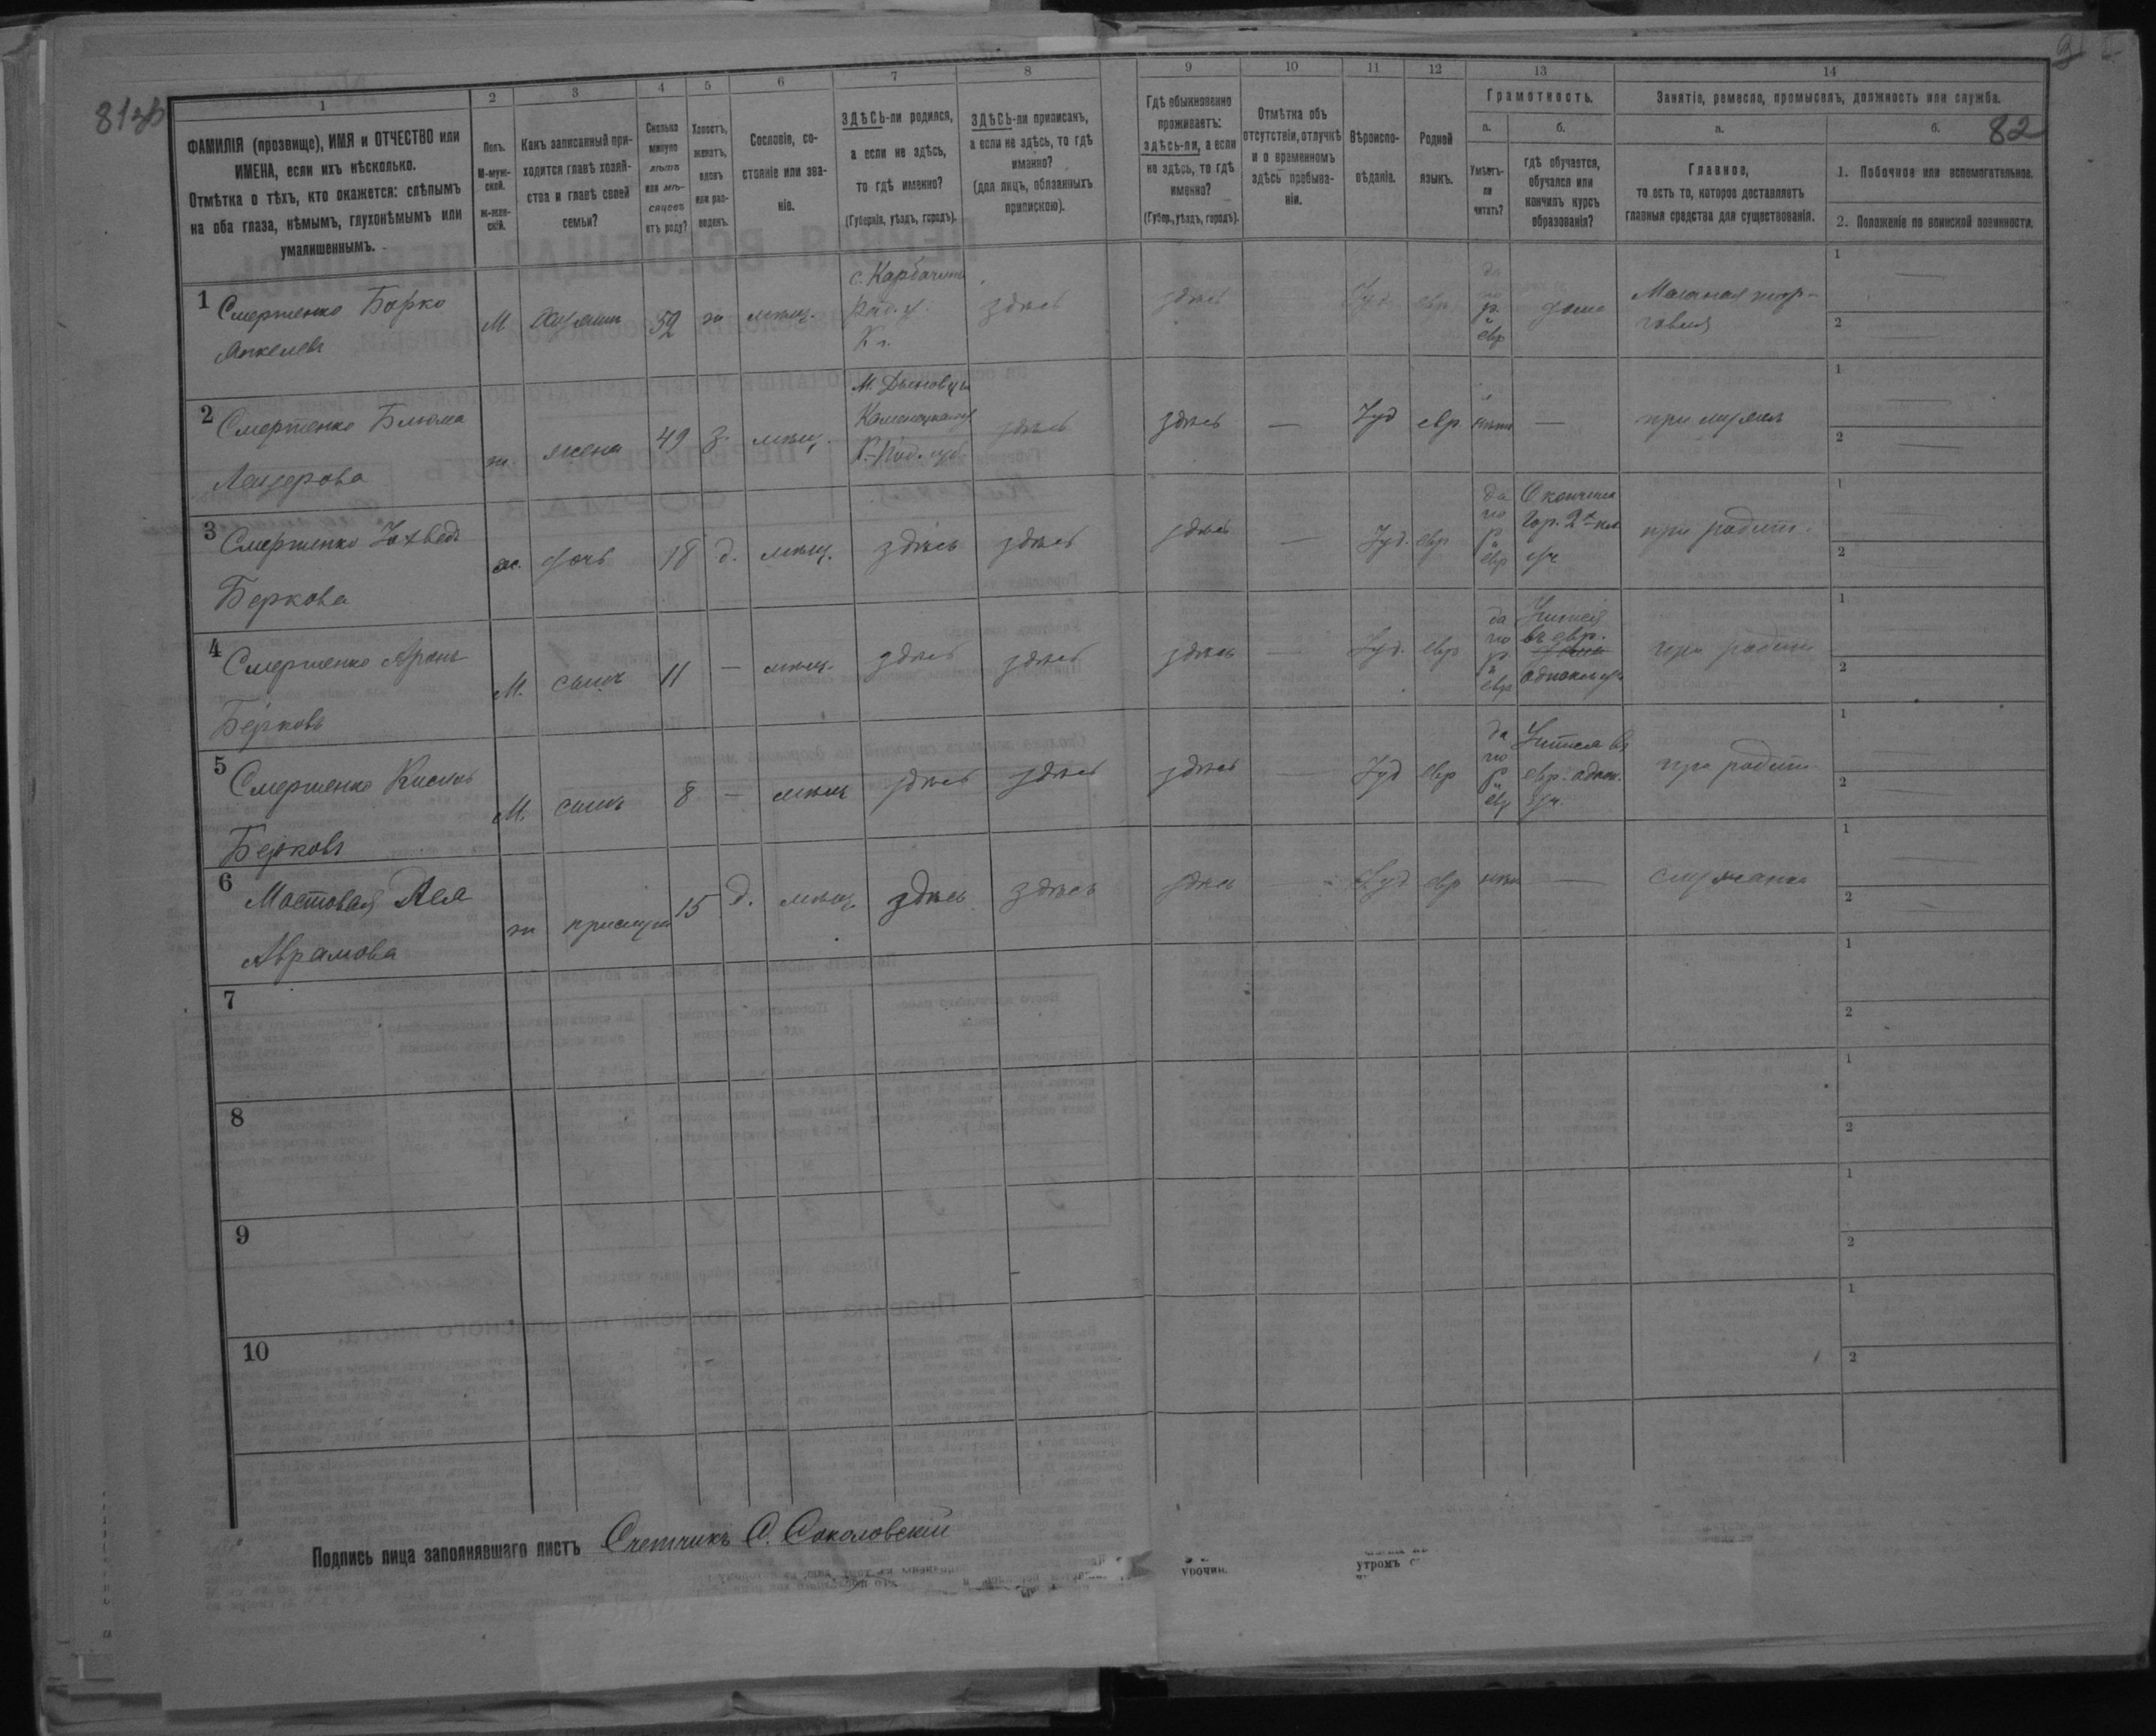 81об
82
1 2 3 4 5 6 7 8 9 10 11 12 13 14
ФАМИЛІЯ (прозвище), ИМЯ и ОТЧЕСТВО или
ИМЕНА, если ихъ нѣсколько.
Отмѣтка о тѣхъ, кто окажется: слѣпымъ
на оба глаза, нѣмымъ, глухонѣмымъ или
умалишеннымъ.
Полъ.
М-муж-
ской.
Ж-жен-
скій.
Какъ записанный при-
ходится главѣ хозяй-
ства и главѣ своей
семьи?
Сколько
минуло
лѣтъ
или мѣ-
сяцевъ
отъ роду?
Холостъ,
женатъ,
вдовъ
или раз-
веденъ.
Сословіе, со-
стояніе или зва-
ніе.
ЗДѢСЬ-ли родился,
а если не здѣсь,
то гдѣ именно?
(Губернія, уѣздъ, городъ).
ЗДѢСЬ-ли приписанъ,
а если не здѣсь, то гдѣ
именно?
(для лицъ, обязанныхъ
припискою).
Гдѣ обыкновенно
проживаетъ:
здѣсь-ли, а если
не здѣсь, то гдѣ
именно?
(Губер., уѣздъ, городъ).
Отмѣтка объ
отсутствіи, отлучкѣ
и о временномъ
здѣсь пребыва-
ніи.
Вѣроиспо-
вѣданіе.
Родной
языкъ.
Грамотность.
а.
Умѣетъ-
ли
читать?
б.
гдѣ обучается,
обучался или
кончилъ курсъ
образованія?
Занятіе, ремесло, промыселъ, должность или служба.
а.
Главное,
то есть то, которое доставляетъ
главныя средства для существованія.
б.
1. Побочное или вспомогательное.
2. Положеніе по воинской повинности.
1 Смертенко Берко
Янкелевъ
М хозяинъ 52 ж мѣщ.
Рад. у.
К г.
здѣсь здѣсь Іуд. евр
да
по
р.
и
евр
дома
Мелочная тор-
говля
1
2
2 Смертенко Блюма
Лейзерова
ж жена 49 з. мѣщ.
К.-Под. губ.
здѣсь здѣсь — Іуд евр нѣтъ — при мужѣ
1
2
3 Смертенко Іохведъ
Беркова
ж. дочь 18 д. мѣщ. здѣсь здѣсь здѣсь — Іуд. евр
да
по
р
и
евр
Окончила
Гор. 2х кл
уч
при родит.
1
2
4 Смертенко Аронъ
Берковъ
М. сынъ 11 — мѣщ. здѣсь здѣсь здѣсь — Іуд. евр
да
по
р
и
евр
Учится
въ евр.
однокл уч
при родит
1
2
5 Смертенко
Берковъ
М. сынъ 8 — мѣщ здѣсь здѣсь здѣсь — Іуд евр
да
по
р
и
евр
Учится въ
евр. однок.
уч.
при родит
1
2
6 Мостовая
Аврамова
ж прислуга 15 д. мѣщ. здѣсь здѣсь здѣсь — Іуд евр нѣтъ — служанка
1
2
7
1
2
8
1
2
9
1
2
10
1
2
Подпись лица заполнявшаго листъ Счетчикъ С. Соколовскій
утромъ